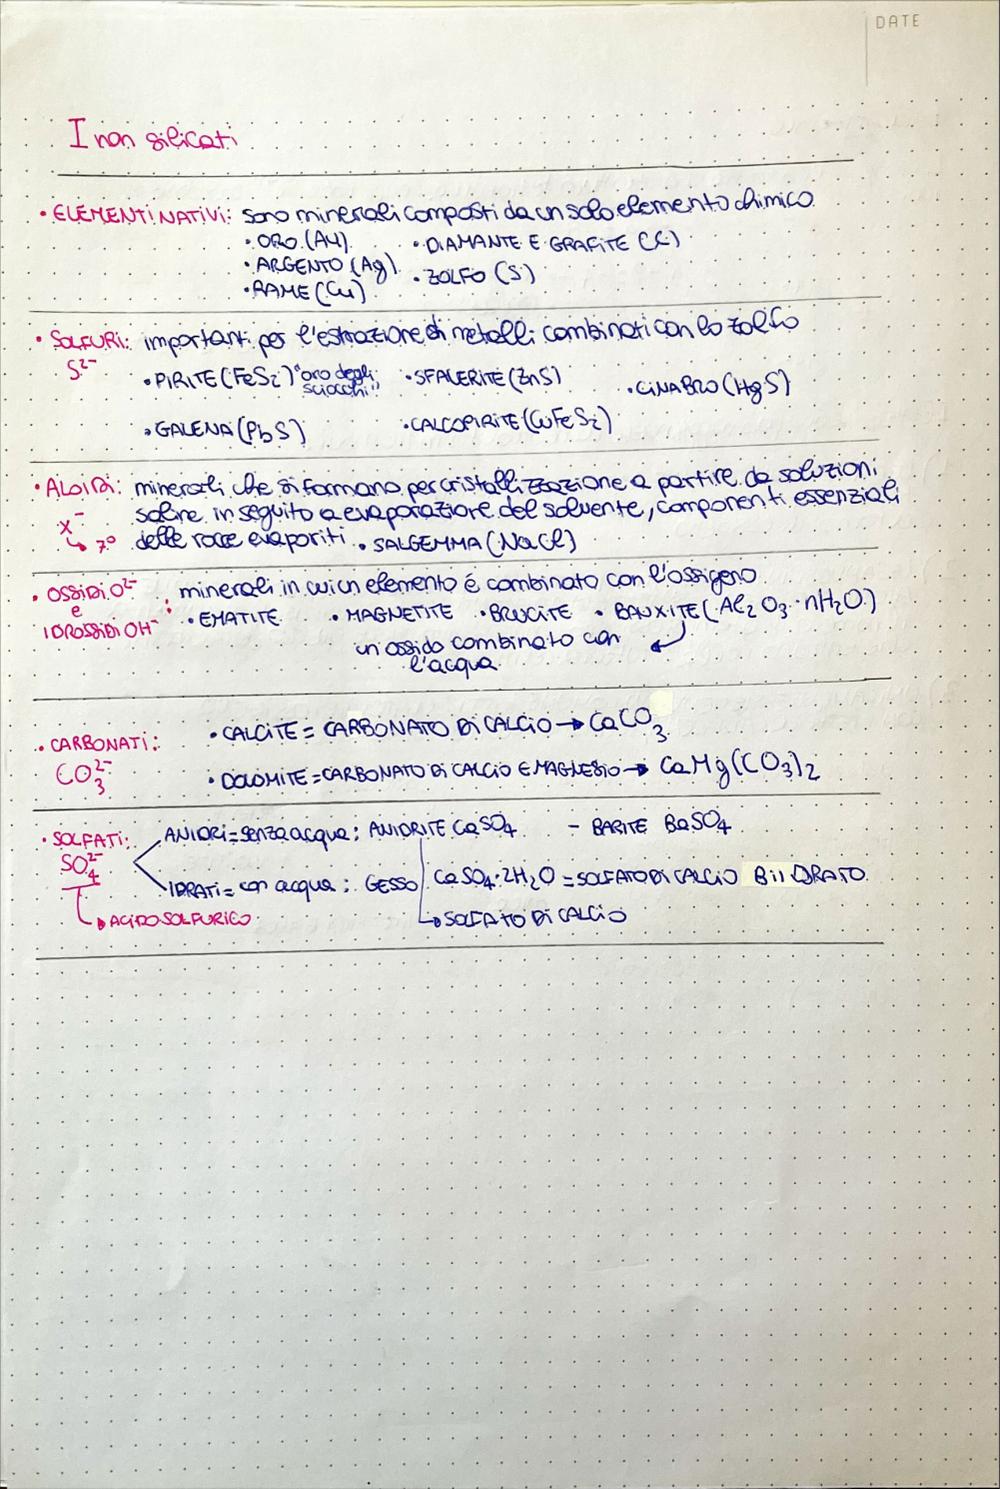 DATE
I non silicati
• ELEMENTI NATIVI: sono minerali composti da un solo elemento chimico
• ORO (Au) • DIAMANTE E GRAFITE (C)
• ARGENTO (Ag) • ZOLFO (S)
• RAME (Cu)
• SOLFURI: importanti per l'estrazione di metalli combinati con lo zolfo
S²⁻
• PIRITE (FeS₂) "oro degli sciocchi" • SFALERITE (ZnS) • CINABRO (HgS)
• GALENA (PbS) • CALCOPIRITE (CuFeS₂)
• ALOIDI: minerali che si formano per cristallizzazione a partire da soluzioni
X⁻ saline in seguito a evaporazione del solvente, componenti essenziali
↳ 7° delle rocce evaporiti • SALGEMMA (NaCl)
• OSSIDI O²⁻ : minerali in cui un elemento é combinato con l'ossigeno
e
IDROSSIDI OH⁻ • EMATITE • MAGNETITE • BRUCITE • BAUXITE (Al₂O₃·nH₂O)
un ossido combinato con
l'acqua
• CARBONATI: • CALCITE = CARBONATO DI CALCIO → CaCO₃
CO₃²⁻ • DOLOMITE = CARBONATO DI CALCIO E MAGNESIO → CaMg(CO₃)₂
• SOLFATI: ANIDRI = senza acqua: ANIDRITE CaSO₄ - BARITE BaSO₄
SO₄²⁻ IDRATI = con acqua: GESSO CaSO₄·2H₂O = SOLFATO DI CALCIO BIIDRATO
↳ ACIDO SOLFURICO ↳ SOLFATO DI CALCIO